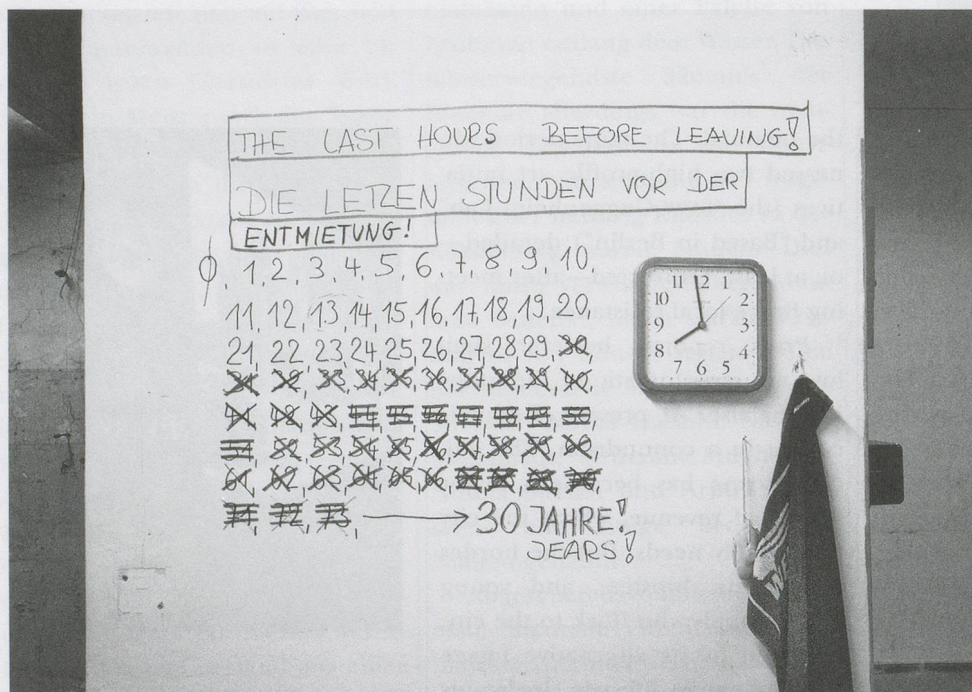 THE LAST HOURS BEFORE LEAVING!
DIE LETZEN STUNDEN VOR DER
ENTMIETUNG!
0, 1, 2, 3, 4, 5, 6, 7, 8, 9, 10,
11, 12, 13, 14, 15, 16, 17, 18, 19, 20
21, 22, 23, 24, 25, 26, 27, 28, 29, 30
31, 32, 33, 34, 35, 36, 37, 38, 39, 40,
41, 42, 43, 44, 45, 46, 47, 48, 49, 50,
51, 52, 53, 54, 55, 56, 57, 58, 59, 60,
61, 62, 63, 64, 65, 66, 67, 68, 69, 70,
71, 72, 73, → 30 JAHRE!
JEARS!
11 12 1
10 2
9 3
8 4
7 6 5